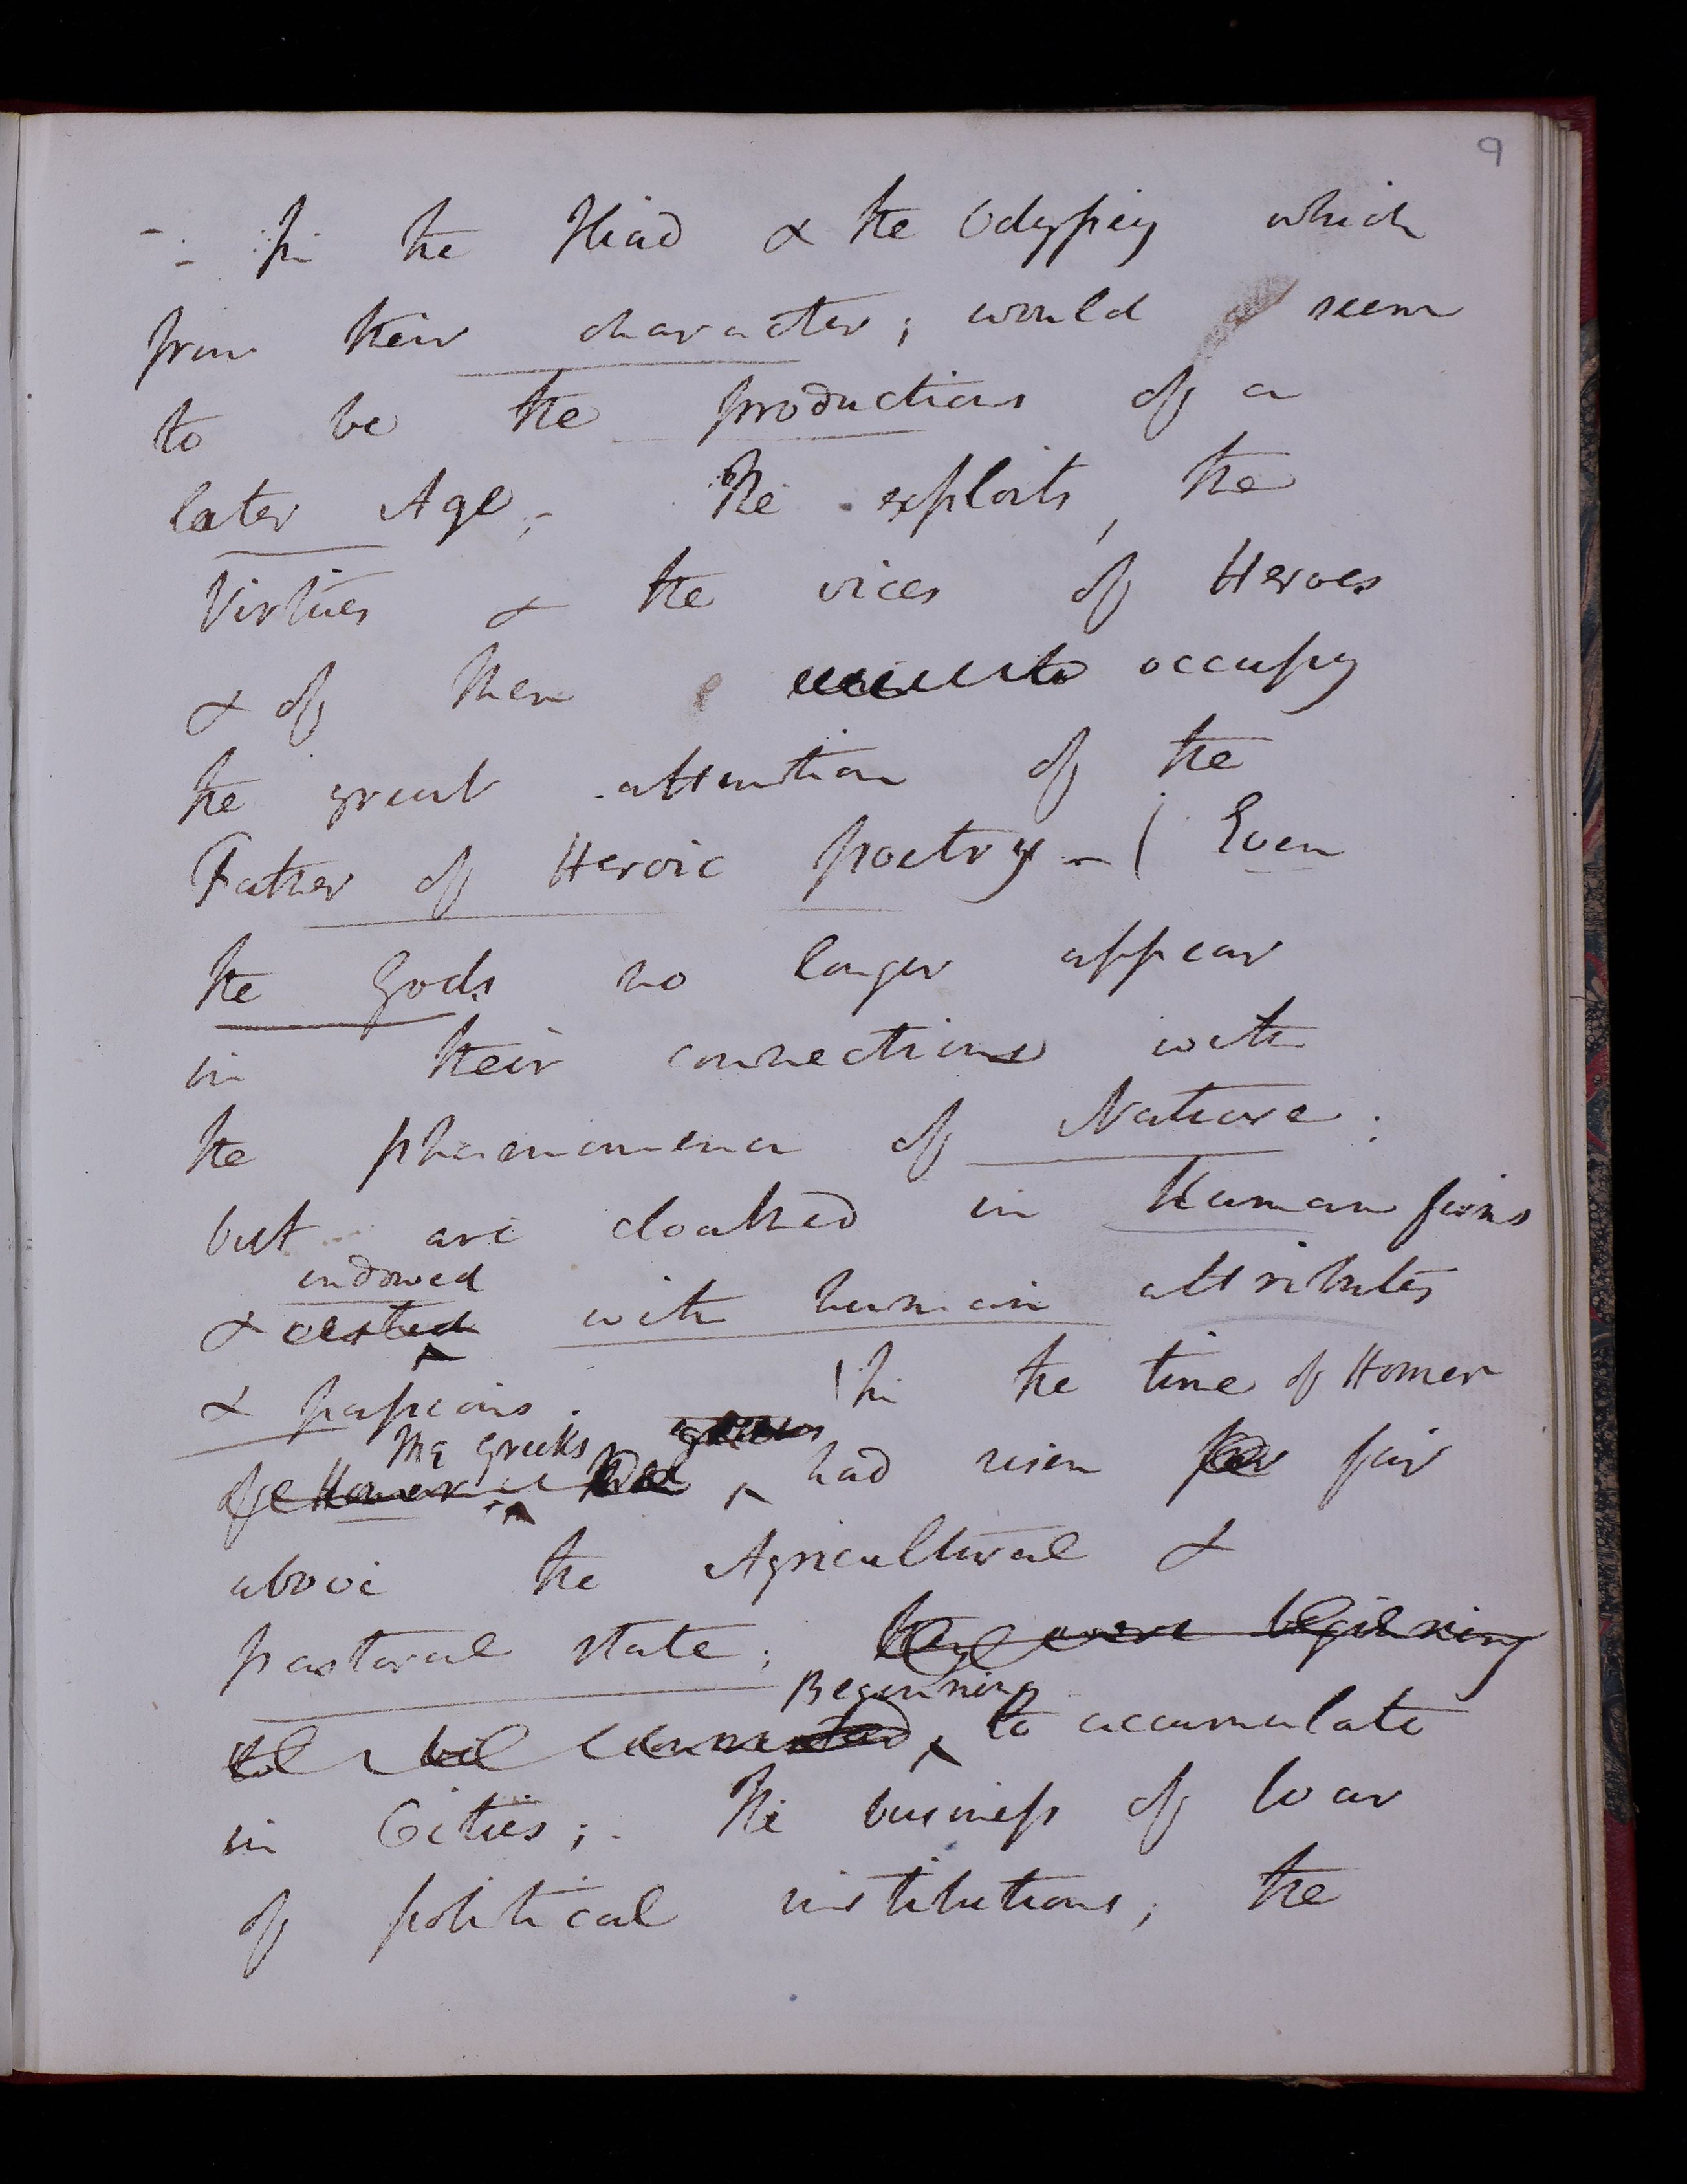 9
- In the Iliad & the Odyssey which
from their character; would seem
to be the productions of a
later Age;- The exploits, the
Virtues & the vices of Heroes
& of Men occupy
the great attention of the
Father of Heroic poetry - ( Even
the Gods no longer appear
in their connections with
the phaenomena of Nature:
but are cloathed in Human forms
endowed
& with human attributes
& passions. In the time of Homer
The Greeks
of Homer had risen far
above the Agricultural &
pastoral state; they were beginning
Beginning
to be connected to accumulate
in Cities; The business of War
of political institutions; the